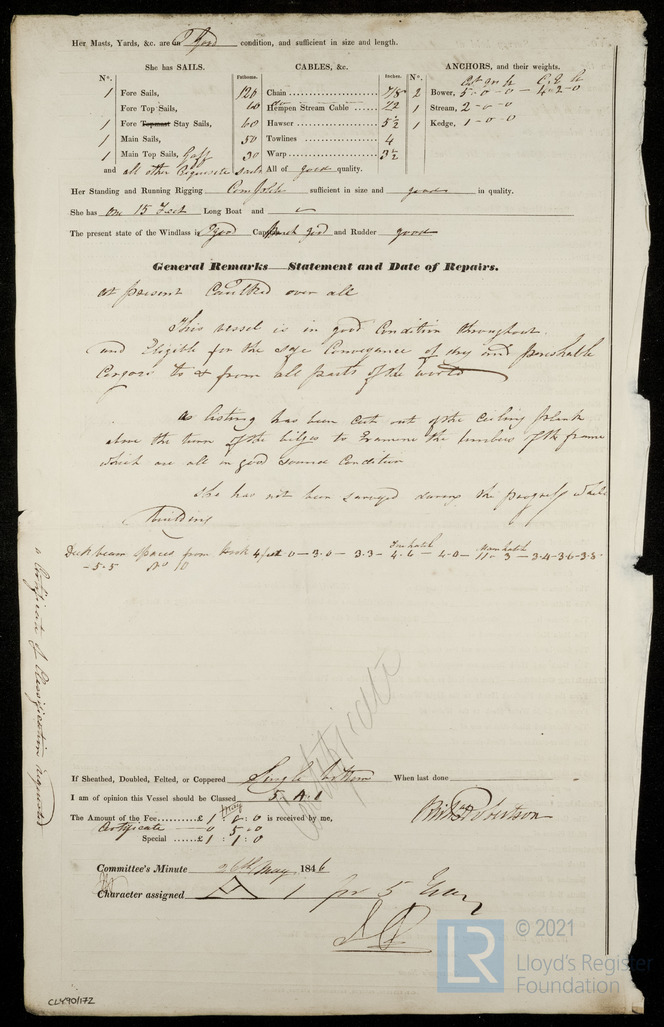 Her Masts, Yards, &c. are in Good condition, and sufficient in size and length.
She has SAILS. CABLES, &c. ANCHORS, and their weights.
N°. Fathoms. Inches. N°.
1 Fore Sails, 120 Chain 7/8 2 Bower, 5-0-0 - 4-2-0
Fore Top Sails, 60 Hempen Stream Cable 1 Stream, 2-0-0
1 Fore Topmast Stay Sails, 60 Hawser 5½ 1 Kedge, 1-0-0
1 Main Sails, 50 Towlines 4
1 Main Top Sails, Gaff 30 Warp 3½
and all other requisite sails All of good quality.
Her Standing and Running Rigging Complete sufficient in size and good in quality.
She has one 15 Feet Long Boat and
The present state of the Windlass is Good Capstan good and Rudder good
General Remarks Statement and Date of Repairs.
at present Caulked over all
This vessel is in good Condition throughout
and Eligible for the safe Conveyance of dry and perishable
Cargoes to & from all parts of the world
as listing has been cut out of the Ceiling plank
above the turn of the bilges to Examine the timbers of the frame
which are all in good sound Condition
She has not been surveyed during the progress while
building
Deck beam spaces from 4 feet 0 - 3.0 - 3.3 - 4.6 - 4.0 - 11.3 - 3.4-3.6-3.8
Fore hatch Main hatch
- 5.5 No 10
a Certificate of Classification requested
Certificate
If Sheathed, Doubled, Felted, or Coppered Single bottom When last done
I am of opinion this Vessel should be Classed 5 A.1
The Amount of the Fee £ 1 : 0 : 0 is received by me,
Certificate 0 5 0
Special £ 1 : 1 : 0
Robertson
Committee's Minute 26th May 1846
Character assigned A 1 for 5 Years
CLY90/172
LR
© 2021
Lloyd's Register
Foundation